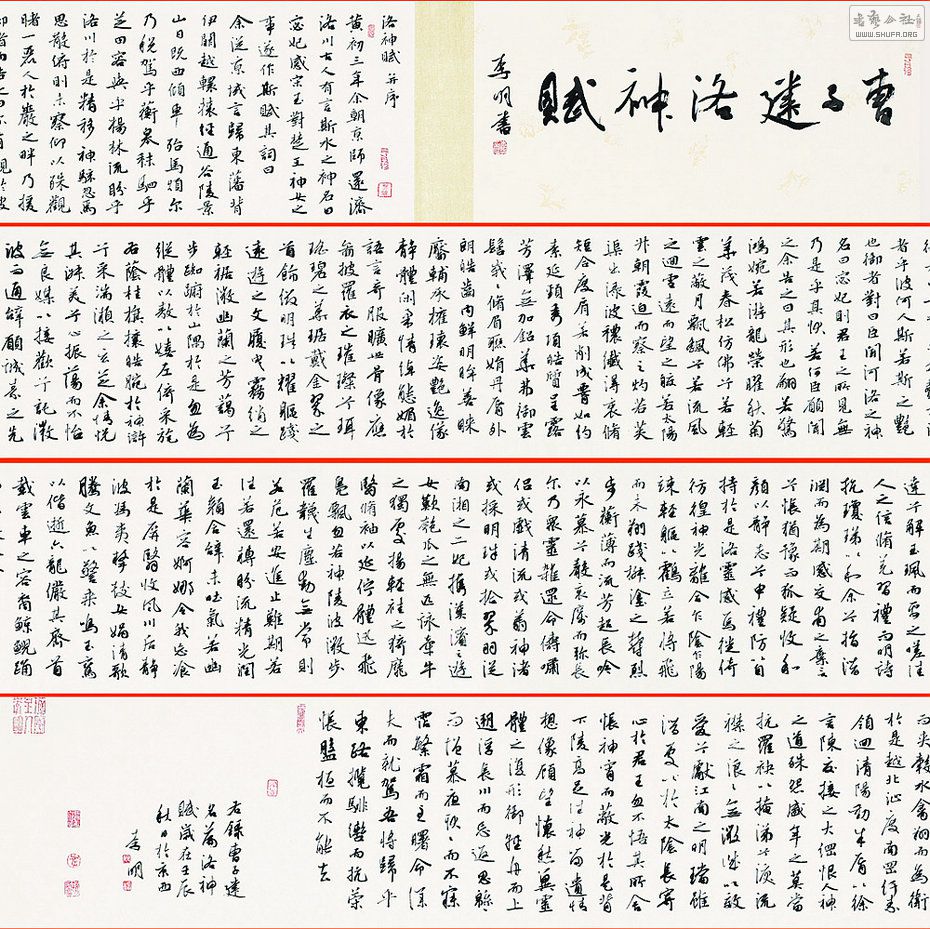 曹子建洛神賦
李明書
書藝公社
WWW.SHUFA.ORG
洛神賦 并序
黃初三年余朝京師還濟
洛川古人有言斯水之神名曰
宓妃感宋玉對楚王神女之
事遂作斯賦其詞曰
余從京域言歸東藩背
伊闕越轘轅經通谷陵景
山日既西傾車殆馬煩爾
乃稅駕乎蘅皋秣駟乎
芝田容與乎楊林流眄乎
洛川於是精移神駭忽焉
思散俯則未察仰以殊觀
睹一麗人於巖之畔乃援
者乎彼何人斯若斯之艷
也御者對曰臣聞河洛之神
名曰宓妃則君王之所見無
乃是乎其狀若何臣願聞
之余告之曰其形也翩若驚
鴻婉若游龍榮曜秋菊
華茂春松仿佛兮若輕
雲之蔽月飄飄兮若流風
之迴雪遠而望之皎若太陽
升朝霞迫而察之灼若芙
渠出淥波襛纖得衷脩
短合度肩若削成腰如約
素延頸秀項皓質呈露
芳澤無加鉛華弗御雲
髻峨峨脩眉聯娟丹脣外
朗皓齒內鮮明眸善睞
靨輔承權瑰姿艷逸儀
靜體閑柔情綽態媚於
語言奇服曠世骨像應
圖披羅衣之璀璨兮珥
瑤碧之華琚戴金翠之
首飾綴明珠以耀軀踐
遠遊之文履曳霧綃之
輕裾微幽蘭之芳藹兮
步踟躕於山隅於是忽焉
縱體以遨以嬉左倚采旄
右蔭桂旗攘皓腕於神滸
兮采湍瀨之玄芝余情悅
其淑美兮心振蕩而不怡
無良媒以接歡兮託微
波而通辭願誠素之先
達兮解玉珮而要之嗟佳
人之信脩羌習禮而明詩
抗瓊珶以和余兮指潛
淵而為期感交甫之棄言
兮悵猶豫而狐疑收和
顏以靜志兮申禮防以自
持於是洛靈感焉徙倚
彷徨神光離合乍陰乍陽
竦輕軀以鶴立若將飛
而未翔踐椒塗之郁烈
步蘅薄而流芳超長吟
以永慕兮聲哀厲而彌長
爾乃眾靈雜遝命儔嘯
侶或戲清流或翔神渚
或採明珠或拾翠羽從
南湘之二妃攜漢濱之遊
女歎匏瓜之無匹詠牽牛
之獨處揚輕袿之猗靡
翳脩袖以延佇體迅飛
鳧飄忽若神陵波微步
羅襪生塵動無常則
若危若安進止難期若
往若還轉眄流精光潤
玉顏含辭未吐氣若幽
蘭華容婀娜令我忘飡
於是屏翳收風川后靜
波馮夷鳴鼓女媧清歌
騰文魚以警乘鳴玉鸞
以偕逝六龍儼其齊首
載雲車之容裔鯨鯢踊
而夾轂水禽翔而為衛
於是越北沚度南岡紆素
領迴清陽動朱脣以徐
言陳交接之大綱恨人神
之道殊怨盛年之莫當
抗羅袂以掩涕兮淚流
襟之浪浪無微情以效
愛兮獻江南之明璫雖
潛處於太陰長寄
心於君王忽不悟其所舍
悵神宵而蔽光於是背
下陵高足往神留遺情
想像顧望懷愁冀靈
體之復形御輕舟而上
遡浮長川而忘返思緜
而增慕夜耿耿而不寐
霑繁霜而至曙命僕
夫而就駕吾將歸乎
東路攬騑轡而抗策
悵盤桓而不能去
右錄曹子建
名篇洛神
賦歲在壬辰
秋日於京西
李明